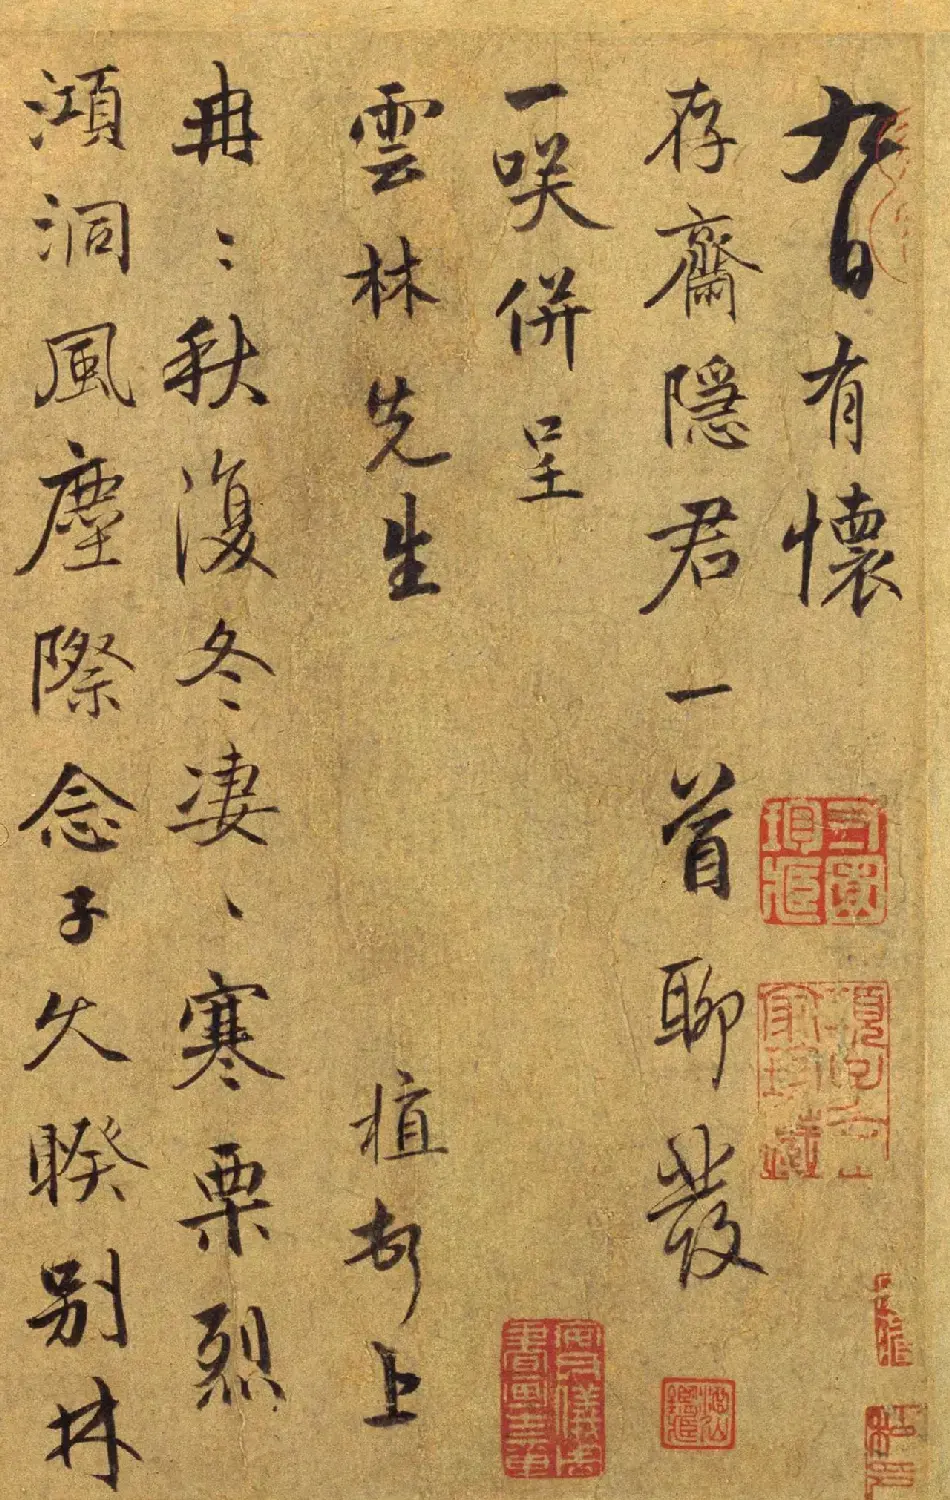 九日有懷
存齋隱君一首聊發
一咲併呈
雲林先生
植頓首上
冉〻秋復冬凄〻寒栗烈
澒洞風塵際念子久睽別林